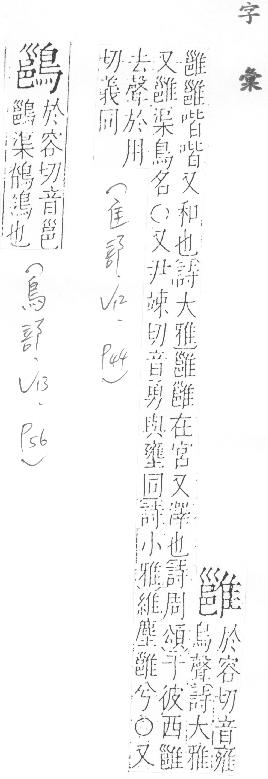 字彙
雝
於容切音雍
鳥聲詩大雅
雝雝喈喈又和也詩大雅雝雝在宮又澤也詩周頌于彼西雝
又雝渠鳥名○又尹竦切音勇與壅同詩小雅維塵雝兮○又
去聲於用
切義同
(隹部、V12、P44)
鷛
於容切音邕
鷛渠鶺鴒也
(鳥部、V13、P56)